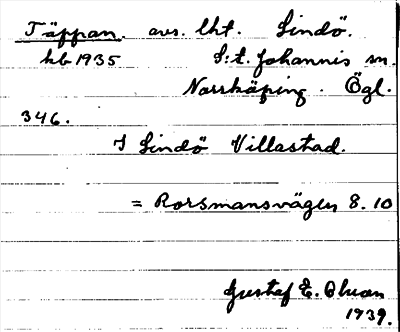 Täppan. avs. lht. Lindö.
kb 1935 S:t. Johannis sn.
Norrköping. Ögl.
346.
I Lindö Villastad.
= Rorsmansvägen 8. 10
Gustaf E. Olson
1939.